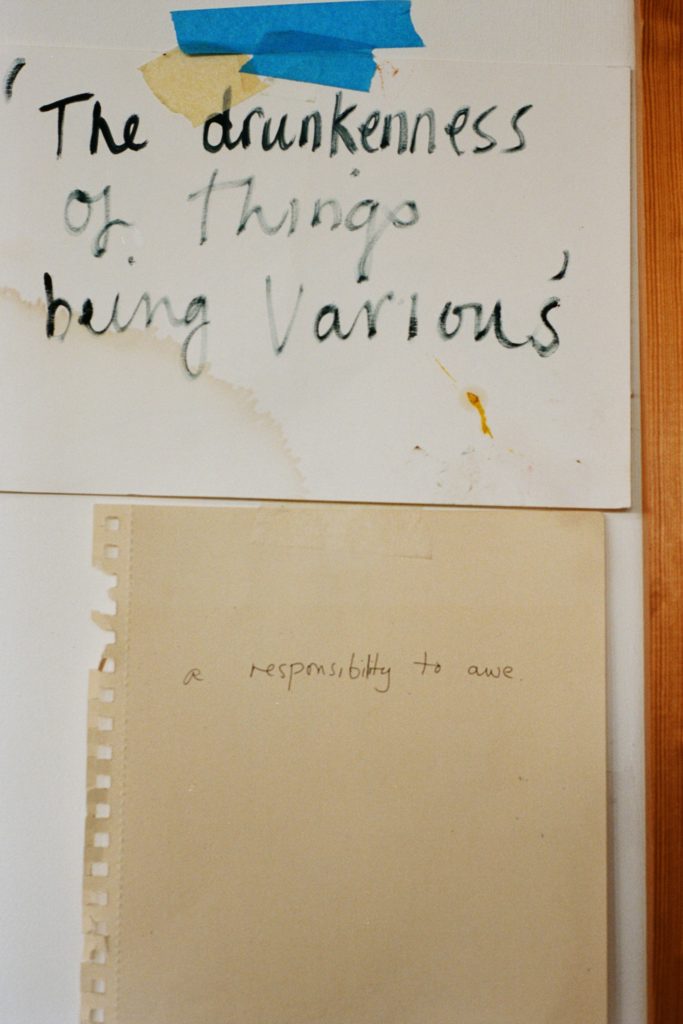 'The drunkenness
of things
being Various'
a responsibility to awe.